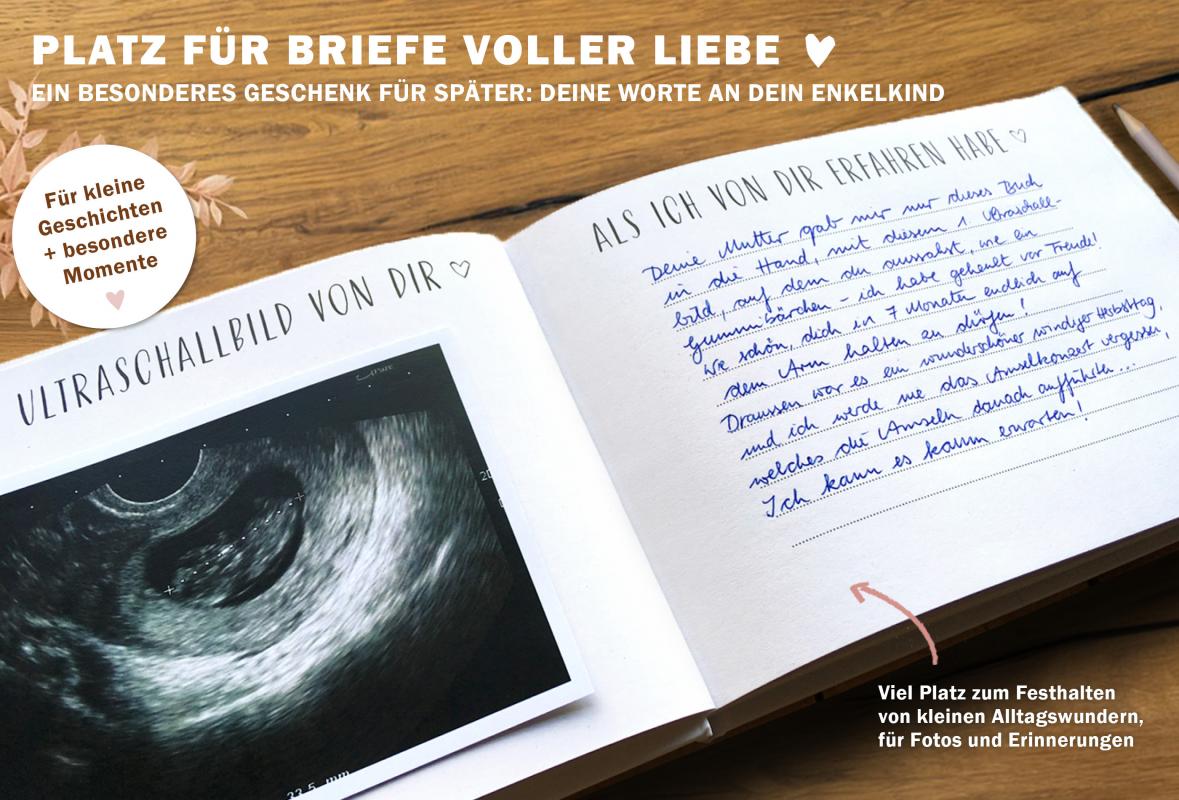 PLATZ FÜR BRIEFE VOLLER LIEBE
EIN BESONDERES GESCHENK FÜR SPÄTER: DEINE WORTE AN DEIN ENKELKIND
Für kleine
Geschichten
+ besondere
Momente
ULTRASCHALLBILD VON DIR
33.5 mm
ALS ICH VON DIR ERFAHREN HABE
Deine Mutter gab mir nur dieses Buch
in die Hand, mit diesem 1. Ultraschall-
bild, auf dem du aussahst, wie ein
Gummibärchen – ich habe geheult vor Freude!
Wie schön, dich in 7 Monaten endlich auf
dem Arm halten zu dürfen!
Draussen war es ein wunderschöner windiger Herbsttag,
und ich werde nie das Amselkonzert vergessen,
welches die Amseln danach aufführten...
Ich kann es kaum erwarten!
Viel Platz zum Festhalten
von kleinen Alltagswundern,
für Fotos und Erinnerungen